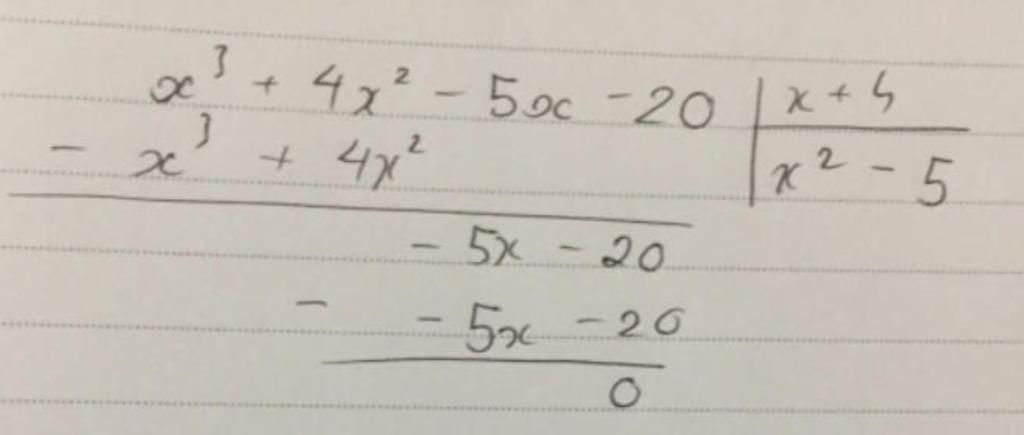 x³ + 4x² - 5x - 20 | x + 4
- x³ + 4x² | x² - 5
- 5x - 20
- - 5x - 20
0